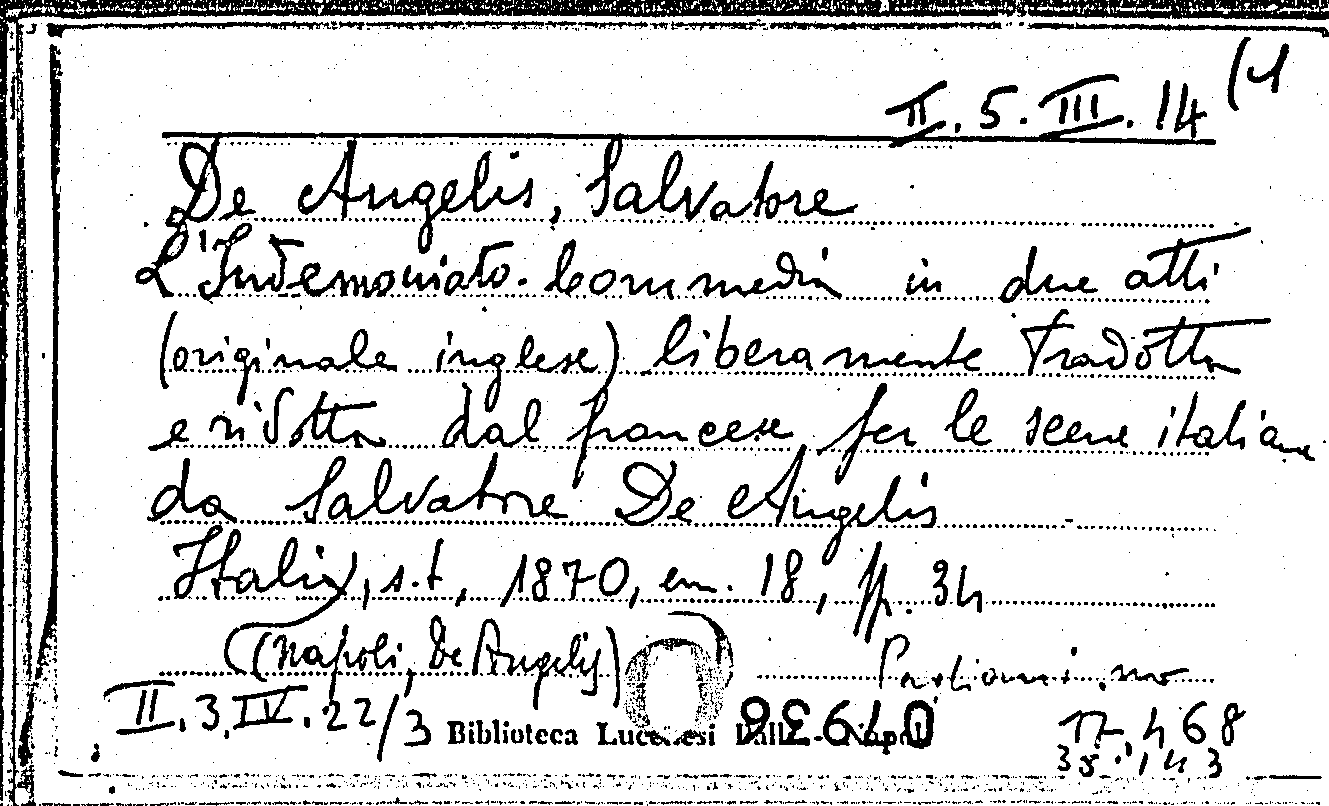 II. 5. III. 14 (1
De Angelis, Salvatore
L'Indemoniato. Commedia in due atti
(originale inglese) liberamente tradotta
e ridotta dal francese per le scene italiane
da Salvatore De Angelis
Italia, s.t., 1870, in 18, pp. 34
(Napoli, De Angelis)
II. 3. IV. 22/3 Biblioteca Lucchesi Palli - Napoli
17.468
35.143